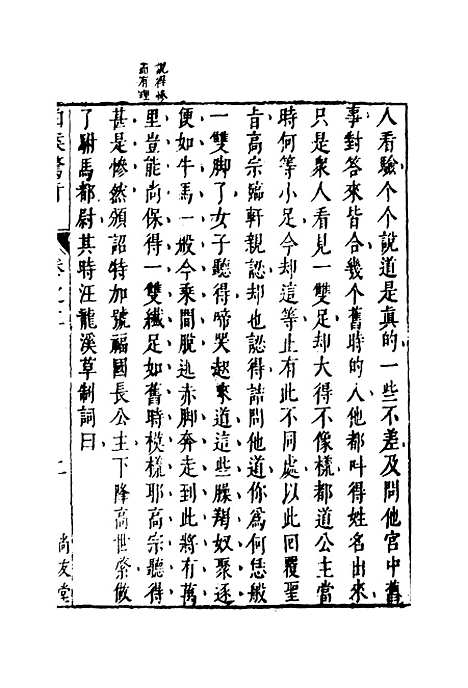 說得慘
而有理
人看驗个个說道是真的一些不差及問他宮中舊
事對答來皆合幾个舊時的人他都叫得姓名出來
只是衆人看見一雙足却大得不像樣都道公主當
時何等小足今却這等止有此不同處以此回覆聖
旨高宗臨軒親認却也認得詰問他道你爲何恁般
一雙脚了女子聽得啼哭起來道這些臊羯奴聚逐
便如牛馬一般今乘間脫逃赤脚奔走到此將有萬
里豈能尚保得一雙纖足如舊時模樣耶高宗聽得
甚是慘然頒詔特加號福國長公主下降高世綮做
了駙馬都尉其時汪龍溪草制詞曰
卷之二
二
尚友堂